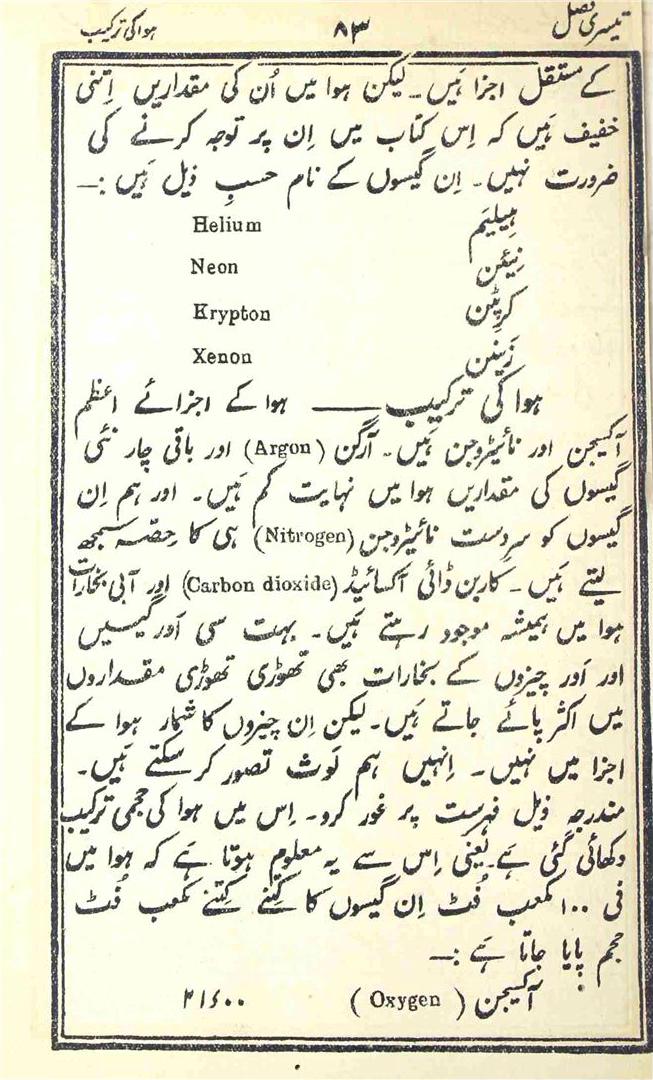 تیسری فصل ۸۳ ہوا کی ترکیب
کے مستقل اجزا ہَیں۔ لیکن ہوا میں اُن کی مقداریں اِتنی
خفیف ہَیں کہ اِس کتاب میں اِن پر توجہ کرنے کی
ضرورت نہیں۔ اِن گیسوں کے نام حسبِ ذیل ہَیں :—
ہیلیَم Helium
نیَئن Neon
کرِپٹن Krypton
زَینن Xenon
ہوا کی ترکیب —— ہوا کے اجزائے اعظم
آکسیجن اور نائیٹروجن ہَیں۔ آرگن (Argon) اور باقی چار نئی
گیسوں کی مقداریں ہوا میں نہایت کم ہَیں۔ اور ہم اِن
گیسوں کو سرِدست نائیٹروجن (Nitrogen) ہی کا حِصّہ سمجھ
لیتے ہَیں۔ کاربن ڈائی آکسائیڈ (Carbon dioxide) اور آبی بخارات
ہوا میں ہمیشہ موجود رہتے ہَیں۔ بہت سی اَور گیسیں
اور اَور چیزوں کے بخارات بھی تھوڑی تھوڑی مقداروں
میں اکثر پائے جاتے ہَیں۔ لیکن اِن چیزوں کا شمار ہوا کے
اجزا میں نہیں۔ اِنہیں ہم لَوث تصور کر سکتے ہَیں۔
مندرجہ ذیل فہرست پر غور کرو۔ اِس میں ہوا کی حجمی ترکیب
دکھائی گئی ہے یعنی اِس سے یہ معلوم ہوتا ہے کہ ہوا میں
فی ۱۰۰ مکعب فُٹ اِن گیسوں کا کِتنے کِتنے مکعب فُٹ
حجم پایا جاتا ہَے :—
آکسیجن (Oxygen) ۲۱٫۰۰